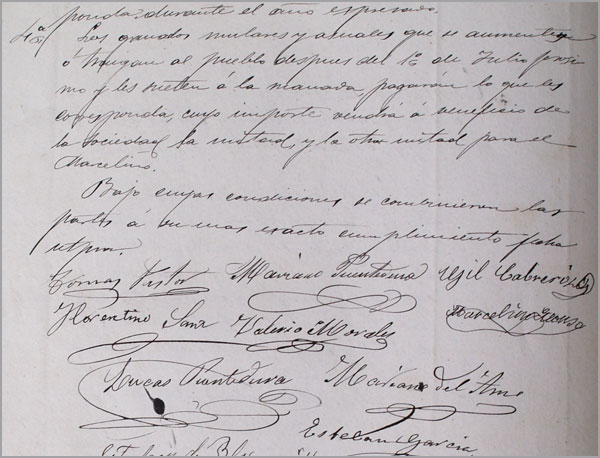 ponda durante el año espresado.
4ª Los ganados mulares y asnales que se aumenten
ó traigan al pueblo despues del 1º de Julio proxi
mo y les meten á la manada, pagarán lo que les
corresponda, cuyo importe vendrá á beneficio de
la sociedad la mitad, y la otra mitad para el
Marcelino.
Bajo cuyas condiciones se combinieron las
partes á su mas exacto cumplimiento fecha
utpra.
Tomas Pastor Mariano Puentedura Gil Cabrerizo
Florentino Sanz Valerio Morales Marcelino
Lucas Puentedura Mariano del Amo
Esteban Garcia
Esteban de